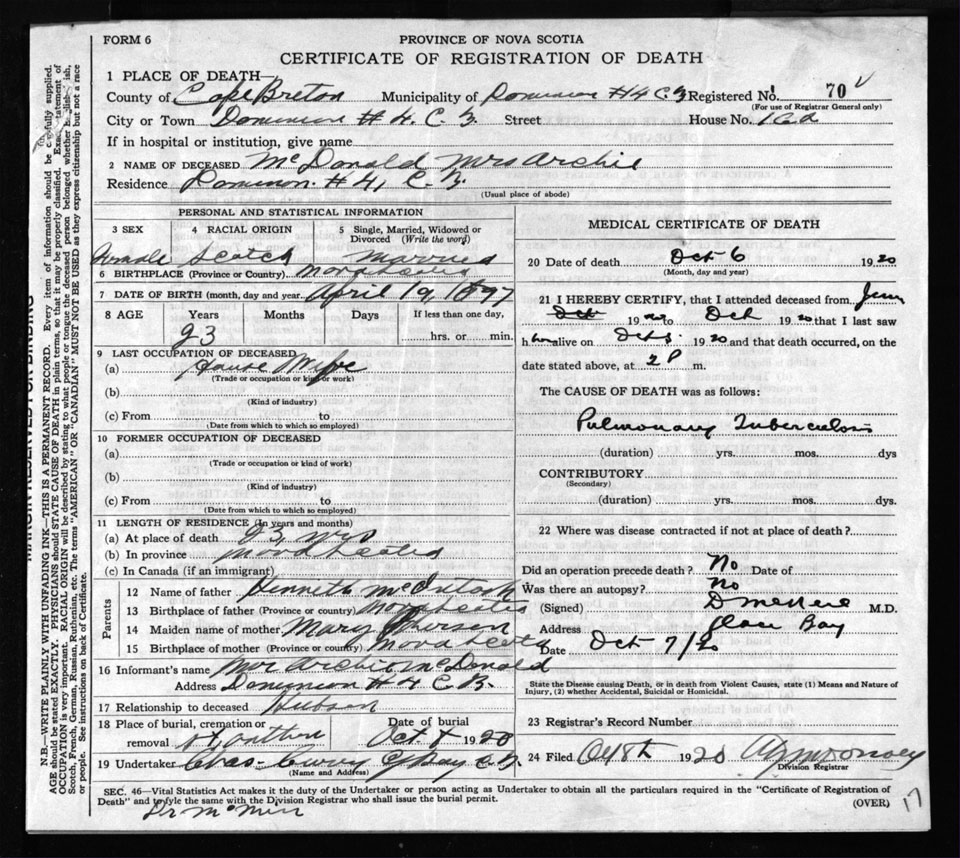 FORM 6
PROVINCE OF NOVA SCOTIA
CERTIFICATE OF REGISTRATION OF DEATH
1 PLACE OF DEATH—
County of Cape Breton Municipality of Dominion #4 C.B Registered No. 70
(For use of Registrar General only)
City or Town Dominion #4. C.B. Street House No.
If in hospital or institution, give name
2 NAME OF DECEASED McDonald Mrs Archie
Residence Dominion. #4, C.B.
(Usual place of abode)
PERSONAL AND STATISTICAL INFORMATION
3 SEX 4 RACIAL ORIGIN 5 Single, Married, Widowed or Divorced (Write the word)
Female Scotch Married
6 BIRTHPLACE (Province or Country) Nova Scotia
7 DATE OF BIRTH (month, day and year) April 19, 1897
8 AGE Years Months Days If less than one day,
23 hrs. or min.
9 LAST OCCUPATION OF DECEASED
(a) House Wife
(Trade or occupation or kind of work)
(b)
(Kind of industry)
(c) From to
(Date from which to which so employed)
10 FORMER OCCUPATION OF DECEASED
(a)
(Trade or occupation or kind of work)
(b)
(Kind of industry)
(c) From to
(Date from which to which so employed)
11 LENGTH OF RESIDENCE (In years and months)
(a) At place of death 23 yrs
(b) In province Nova Scotia
(c) In Canada (if an immigrant)
Parents
12 Name of father Kenneth McIntosh
13 Birthplace of father (Province or country) Nova Scotia
14 Maiden name of mother Mary
15 Birthplace of mother (Province or country) Nova Scotia
16 Informant's name Mr Archie McDonald
Address Dominion #4 C.B.
17 Relationship to deceased Husban
18 Place of burial, cremation or removal Date of burial Oct 1920
19 Undertaker Chas. Curry G Bay C.B.
(Name and Address)
MEDICAL CERTIFICATE OF DEATH
20 Date of death Oct 6 1920
(Month, day and year)
21 I HEREBY CERTIFY, that I attended deceased from June
Oct 1920 to Oct 1920 that I last saw
her alive on Oct 5 1920 and that death occurred, on the
date stated above, at 2 P m.
The CAUSE OF DEATH was as follows:
Pulmonary Tuberculosis
(duration) yrs. mos. dys
CONTRIBUTORY
(Secondary)
(duration) yrs. mos. dys.
22 Where was disease contracted if not at place of death?
Did an operation precede death? No Date of
Was there an autopsy? No
(Signed) M.D.
Address Glace Bay
Date Oct 7/20
State the Disease causing Death, or in death from Violent Causes, state (1) Means and Nature of
Injury, (2) whether Accidental, Suicidal or Homicidal.
23 Registrar's Record Number
24 Filed Oct 8th 1920
Division Registrar
SEC. 46—Vital Statistics Act makes it the duty of the Undertaker or person acting as Undertaker to obtain all the particulars required in the "Certificate of Registration of
Death" and to fyle the same with the Division Registrar who shall issue the burial permit.
(OVER)
17
N.B.—WRITE PLAINLY WITH UNFADING INK—THIS IS A PERMANENT RECORD. Every item of information should be carefully supplied.
AGE should be stated EXACTLY. PHYSICIANS should STATE CAUSE OF DEATH in plain terms, so that it may be properly classified. Exact statement of
OCCUPATION is very important. RACIAL ORIGIN will be described by stating to what people or tongue the deceased person belonged whether English, Irish,
Scotch, French, German, Russian, Ruthenian, etc. The terms "AMERICAN" OR "CANADIAN" MUST NOT BE USED as they express citizenship but not a race
or people. See instructions on back of Certificate.